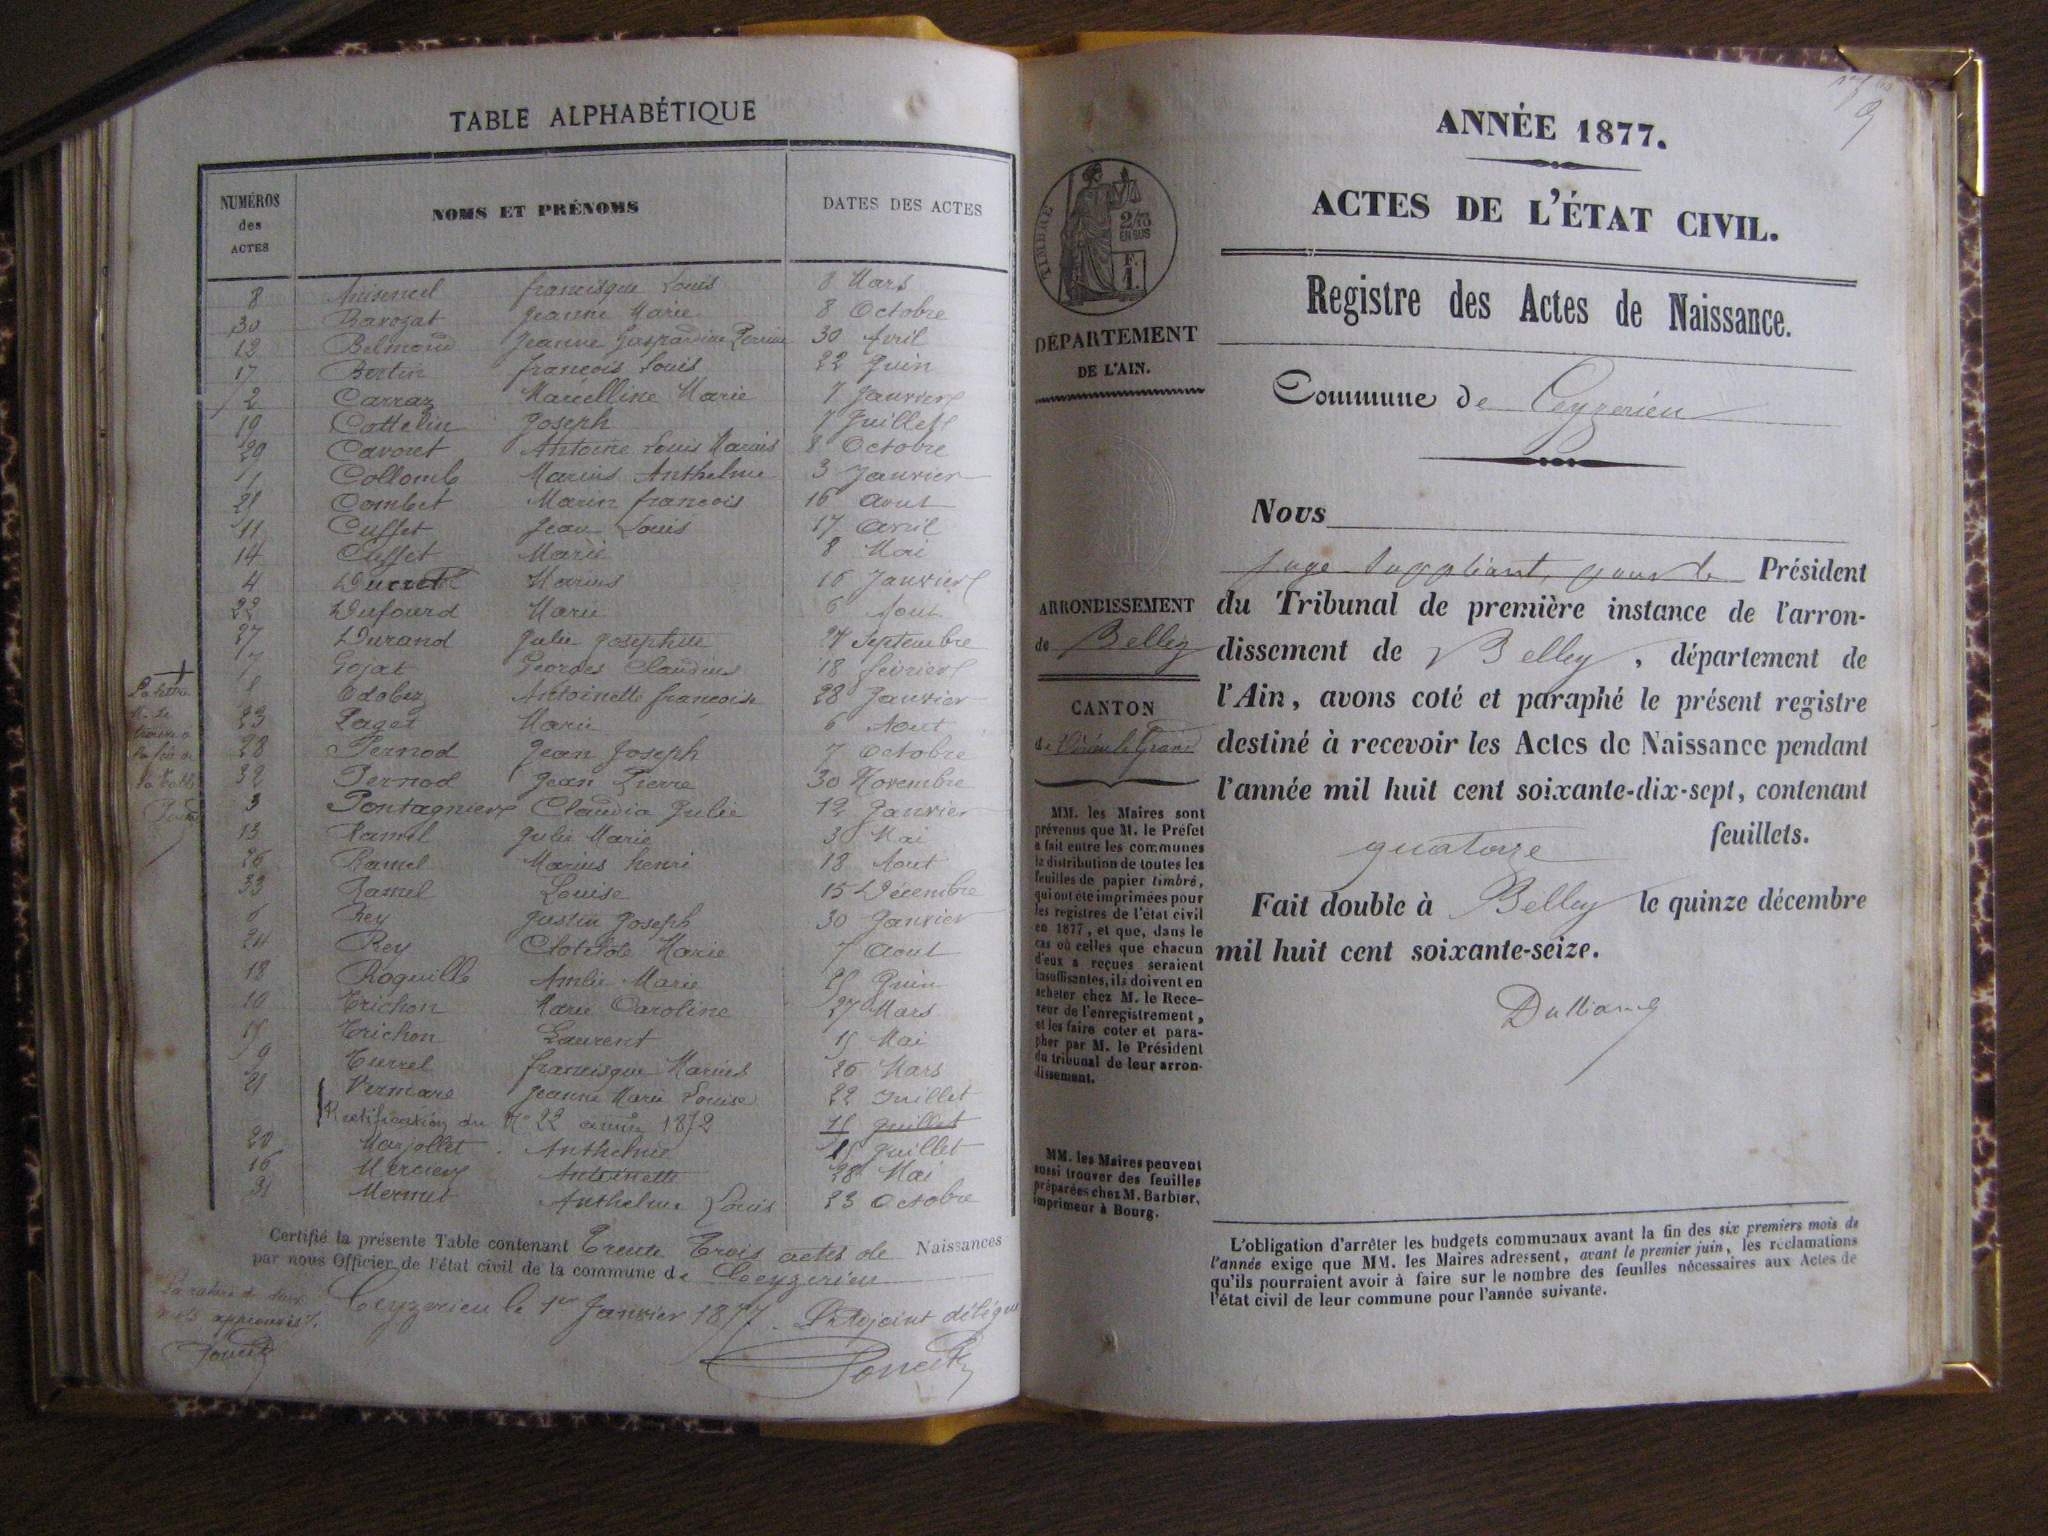 TABLE ALPHABÉTIQUE
NUMÉROS des ACTES NOMS ET PRÉNOMS DATES DES ACTES
8 francisque Louis 8 Mars
30 Bavozat Jeanne Marie 8 Octobre
12 Belmond Jeanne Gaspardine Perrine 30 Avril
17 Bertin françois Louis 22 Juin
2 Carraz Marcelline Marie 7 Janvier
19 Cottelin Joseph 7 Juillet
29 Cavoret Antoine Louis Marius 8 Octobre
1 Collomb Marius Anthelme 3 Janvier
25 Combet Marin françois 16 Aout
11 Cusset Jean Louis 17 Avril
14 Cusset Marie 8 Mai
4 Ducret Marius 16 Janvier
22 Dufourd Marie 6 Aout
27 Durand Julie Josephine 24 Septembre
7 Gojat Georges Claudius 18 février
Odobez Antoinette françoise 28 Janvier
23 Paget Marie 6 Aout
28 Pernod Jean Joseph 7 Octobre
32 Pernod Jean Pierre 30 Novembre
3 Pontagnier Claudia Julie 12 Janvier
13 Ramel Julie Marie 3 Mai
26 Ramel Marius henri 18 Aout
33 Ramel Louise 15 Décembre
6 Rey Justin Joseph 30 Janvier
24 Rey Clotilde Marie 7 Aout
18 Roguille Amélie Marie Juin
10 Trichon Marie Caroline 27 Mars
15 Trichon Laurent 15 Mai
9 Turrel francisque Marius 26 Mars
21 Vermare Jeanne Marie Louise 22 Juillet
Rectification du No 22 année 1872 15 Juillet
20 Marjollet Anthelmie 15 Juillet
16 Mercier Antoinette 28 Mai
31 Mermet Anthelme Louis 23 Octobre
La lettre
M. se
trouve à
la fin de
la Table
Certifié la présente Table contenant Trente Trois actes de Naissances
par nous Officier de l'état civil de la commune de Ceyzerieu
Ceyzerieu le 1er Janvier 1877. L'Adjoint délégué
La rature de deux
mots approuvés.
ANNÉE 1877.
ACTES DE L'ÉTAT CIVIL.
Registre des Actes de Naissance.
Commune de Ceyzerieu
Nous
juge suppléant, pour le Président
du Tribunal de première instance de l'arron-
dissement de Belley, département de
l'Ain, avons coté et paraphé le présent registre
destiné à recevoir les Actes de Naissance pendant
l'année mil huit cent soixante-dix-sept, contenant
quatorze feuillets.
Fait double à Belley le quinze décembre
mil huit cent soixante-seize.
TIMBRE
2/10
EN SUS
F.
1.
DÉPARTEMENT
DE L'AIN.
ARRONDISSEMENT
de Belley
CANTON
de Virieu le Grand
MM. les Maires sont
prévenus que M. le Préfet
a fait entre les communes
la distribution de toutes les
feuilles de papier timbré,
qui ont été imprimées pour
les registres de l'état civil
en 1877, et que, dans le
cas où celles que chacun
d'eux a reçues seraient
insuffisantes, ils doivent en
acheter chez M. le Rece-
veur de l'enregistrement,
et les faire coter et para-
pher par M. le Président
du tribunal de leur arron-
dissement.
MM. les Maires peuvent
aussi trouver des feuilles
préparées chez M. Barbier,
imprimeur à Bourg.
L'obligation d'arrêter les budgets communaux avant la fin des six premiers mois de
l'année exige que MM. les Maires adressent, avant le premier juin, les réclamations
qu'ils pourraient avoir à faire sur le nombre des feuilles nécessaires aux Actes de
l'état civil de leur commune pour l'année suivante.